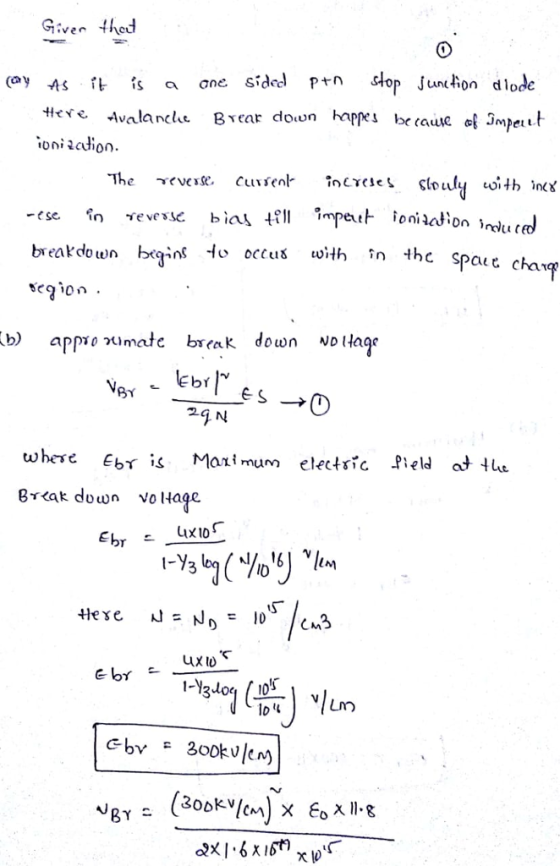 Given that
①
(a) As it is a one sided p+n stop junction diode
Here Avalanche Break down happes because of Impeut
ionization.
The reverse current increses slowly with incr
-ese in reverse bias till impeut ionisation induced
breakdown begins to occus with in the space charge
region.
(b) approximate break down voltage
V_Br = |Ebr|² / 2qN ES → ①
where Ebr is Maximum electric field at the
Break down voltage
Ebr = 4x10⁵ / 1-1/3 log (N/10¹⁶) v/cm
Here N = N_D = 10¹⁵/cm3
Ebr = 4x10⁵ / 1-1/3 log (10¹⁵/10¹⁶) v/cm
Ebr = 300kv/cm
V_Br = (300kv/cm)² x ε₀ x 11.8 / 2x1.6x10⁻¹⁹ x 10¹⁵